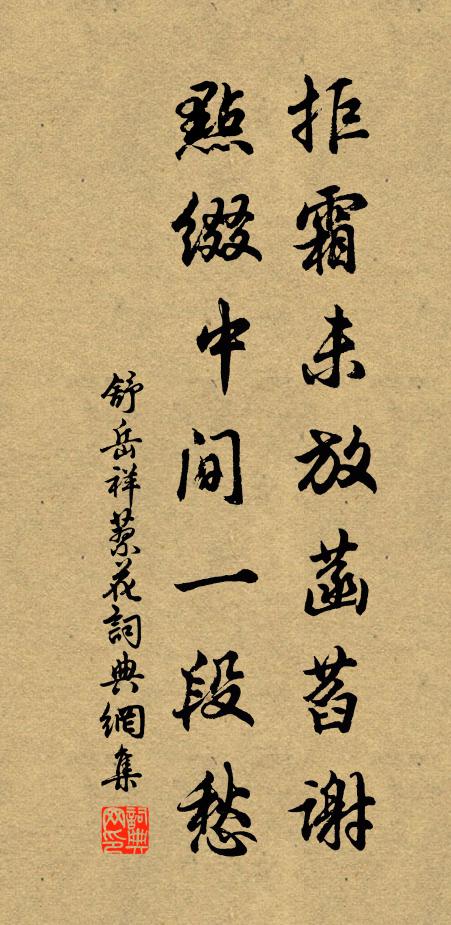 拒霜未放菡萏謝
點綴中間一段愁
舒岳祥蓼花詞典網集
詞典網印